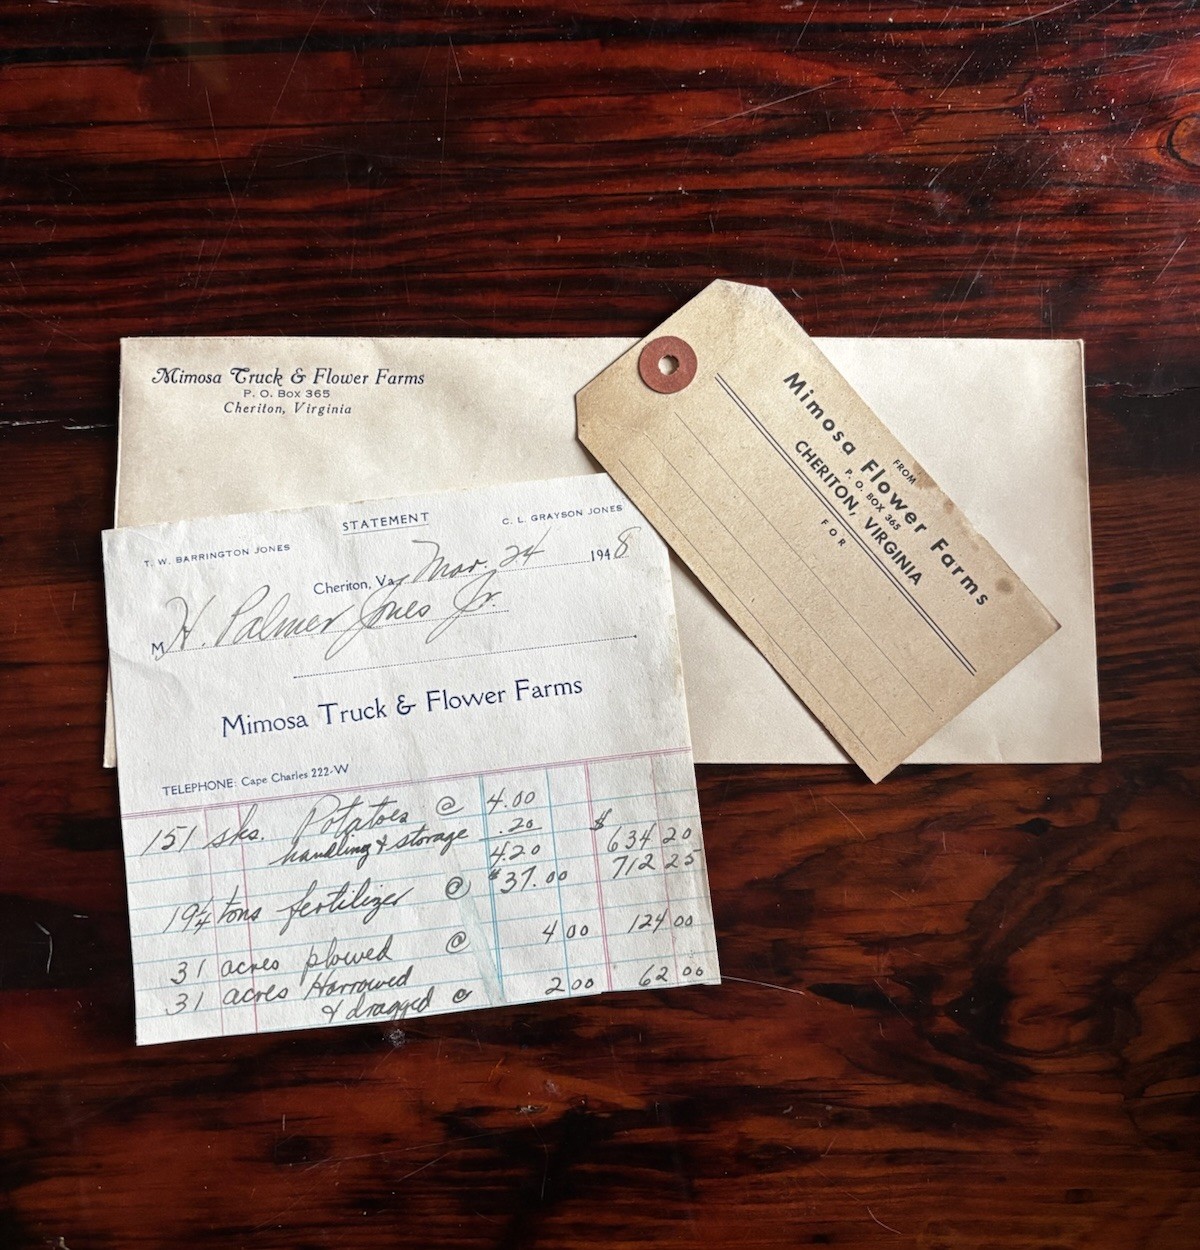 Mimosa Truck & Flower Farms
P. O. Box 365
Cheriton, Virginia
FROM
Mimosa Flower Farms
P. O. BOX 365
CHERITON, VIRGINIA
FOR
STATEMENT
T. W. BARRINGTON JONES C. L. GRAYSON JONES
Cheriton, Va., Mar. 24 1948
M H. Palmer Jones Jr.
Mimosa Truck & Flower Farms
TELEPHONE: Cape Charles 222-W
151 sks. Potatoes @ 4.00
handling & storage .20
4.20 $ 634 20
19 1/4 tons fertilizer @ $37.00 712 25
31 acres plowed @ 4 00 124 00
31 acres Harrowed
& dragged @ 2 00 62 00